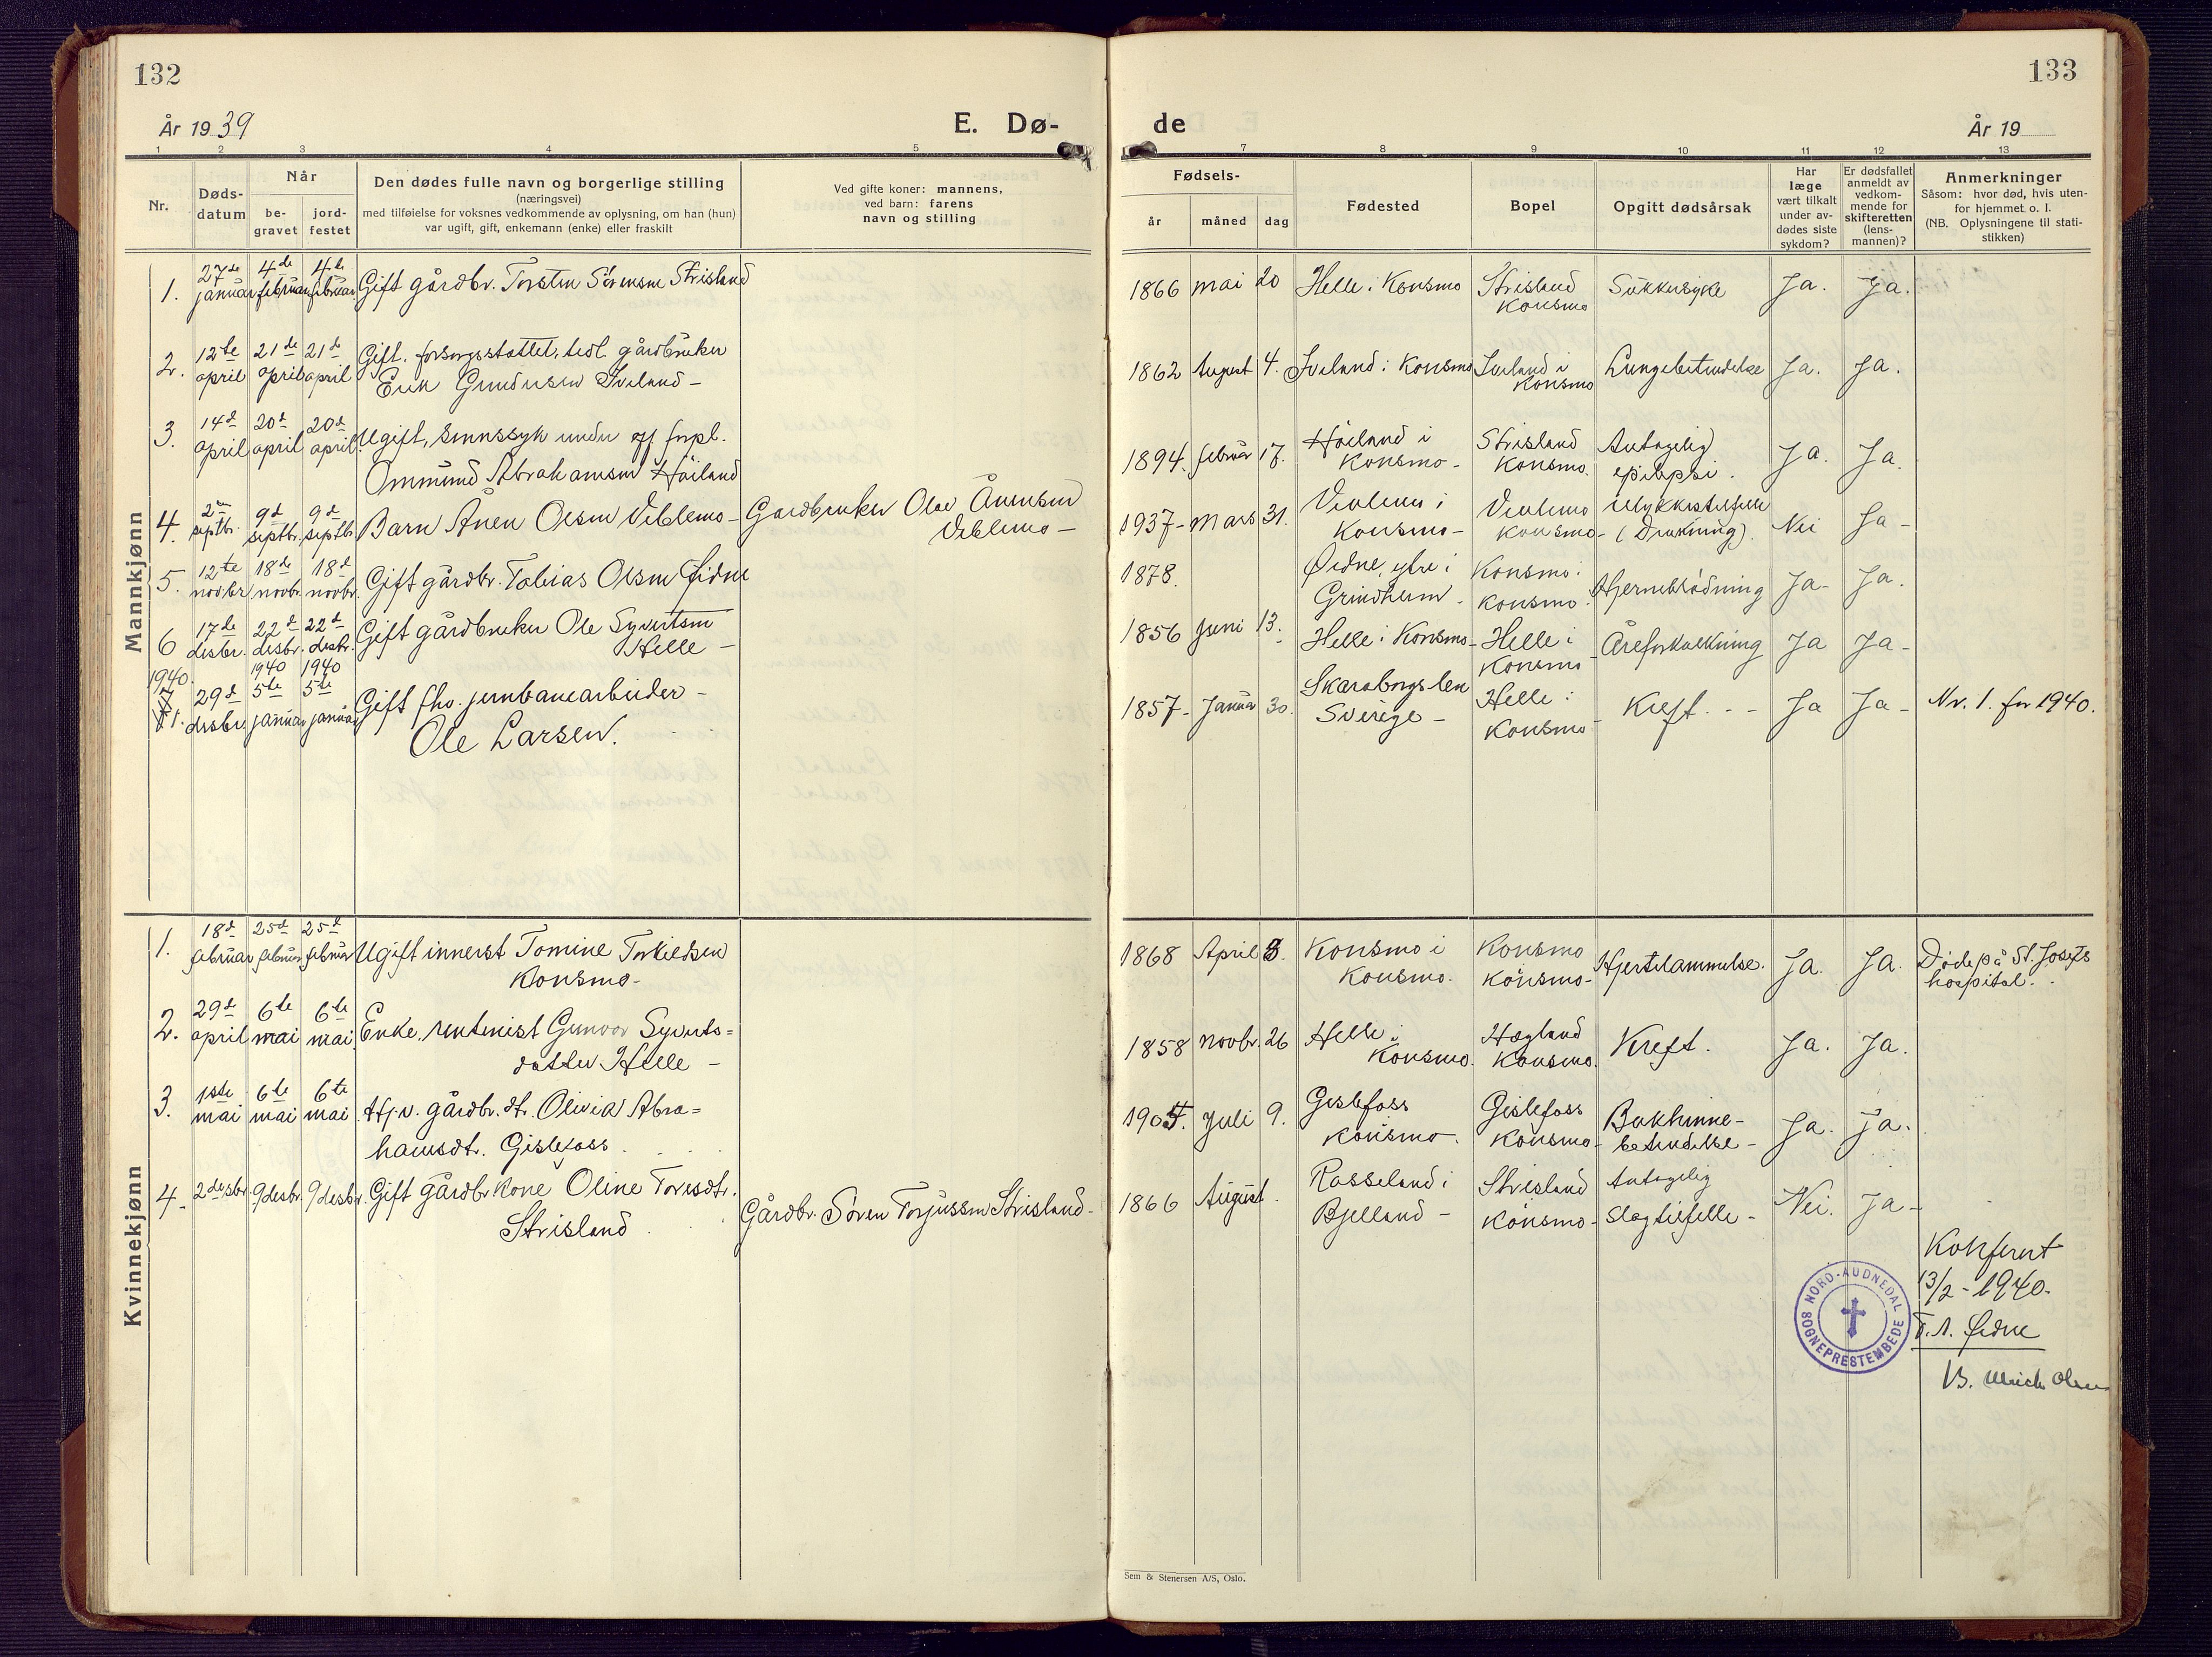 132
År 1939
E. Dø-
1 2 3 4 5
Nr.
Døds-
datum
Når
be-
gravet
jord-
festet
Den dødes fulle navn og borgerlige stilling
(næringsvei)
med tilføielse for voksnes vedkommende av oplysning, om han (hun)
var ugift, gift, enkemann (enke) eller fraskilt
Ved gifte koner: mannens,
ved barn: farens
navn og stilling
Mannkjønn
27de 4de 4de
1. januar februar februar Gift gårdbr. Torsten Sørensen Strisland
12te 21de 21d Gift. forsorgsstøttet, tidl. gårdbruker
2. april april april
Erik Gundersen Iveland –
14d 20d 20d
3. april april april Ugift, sinnssyk under off forpl.
Ommund Abrahamsen Høiland
septbr. 9d septbr. 9d septbr.
4. Barn Ånen Olsen Veblemo – Gardbruker Olav Ånensen
Veblemo –
12te 18de 18d
5. novbr novbr. novbr. Gift gårdbr. Tobias Olsen Øidne
17de 22d 22d Gift gårdbruker Ole Syvertsen
6 desbr. desbr. desbr. Helle –
1940. 1940 1940
7 29d 5te 5te Gift fho. jernbanearbeider –
1. desbr. januar januar
Ole Larsen.
Kvinnekjønn
18d 25d 25d
1. februar februar februar Ugift innerst Tomine Torkildsen
Konsmo –
29d 6te 6te
2. april mai mai Enke, rentenist Gunvor Syverts=
datter Helle –
1ste 6te 6te
3. mai mai mai Hj.v. gårdbr. dt. Olivia Abra=
hamsdt. Gislefoss
4. 2 desbr. 9 desbr. 9 desbr. Gift gårdbr kone Oline Toresdtr.
Strisland
Gårdbr. Søren Torjussen Strisland –
133
de
År 19
7 8 9 10 11 12 13
Fødsels-
år måned dag
Fødested
Bopel
Opgitt dødsårsak
Har
læge
vært tilkalt
under av-
dødes siste
sykdom?
Er dødsfallet
anmeldt av
vedkom-
mende for
skifteretten
(lens-
mannen)?
Anmerkninger
Såsom: hvor død, hvis uten-
for hjemmet o. l.
(NB. Oplysningene til stati-
stikken)
1866 mai 20 Helle i Konsmo Strisland Sukkersyke Ja. Ja.
Konsmo
1862 August 4. Iveland i Konsmo Iveland i Lungebetendelse Ja. Ja.
Konsmo
1894. februar 17. Høiland i Strisland Antagelig Ja. Ja.
Konsmo – Konsmo. epilepsi.
1937 – Mars 31. Veblemo i Veblemo Ulykkestilfelle Nei Ja –
Konsmo – Konsmo – (Drukning).
1878. Øidne, ytre i Konsmo i Hjerneblødning Ja – Ja.
Grindheim – Konsmo.
1856 Juni 13. Helle i Konsmo – Helle i Åreforkalkning Ja Ja –
Konsmo –
1857 – Januar 30. Skaraborgs len Helle i Kreft. – – Ja Ja – Nr. 1. for 1940.
Sverige – Konsmo –
1868 April 3. Konsmo i Konsmo Hjertelammelse. Ja. Ja. Døde på St. Josefs
Konsmo. Konsmo – hospital.
1858 novbr. 26 Helle i Hægland Kreft. Ja. Ja.
Konsmo. Konsmo.
Juli 9. Gislefoss Gislefoss Bukhinne- Ja. Ja.
Konsmo –. Konsmo – betendelse –
1866 August. Rosseland i Strisland Antagelig Nei. Ja –
Bjelland – Konsmo – slagtilfelle –
Konferert
13/2 – 1940.
T. A. Øidne
B. Ulrich Olsen
NORD-AUDNEDAL
SOGNEPRESTEMBEDE
Sem & Stenersen A/S, Oslo.